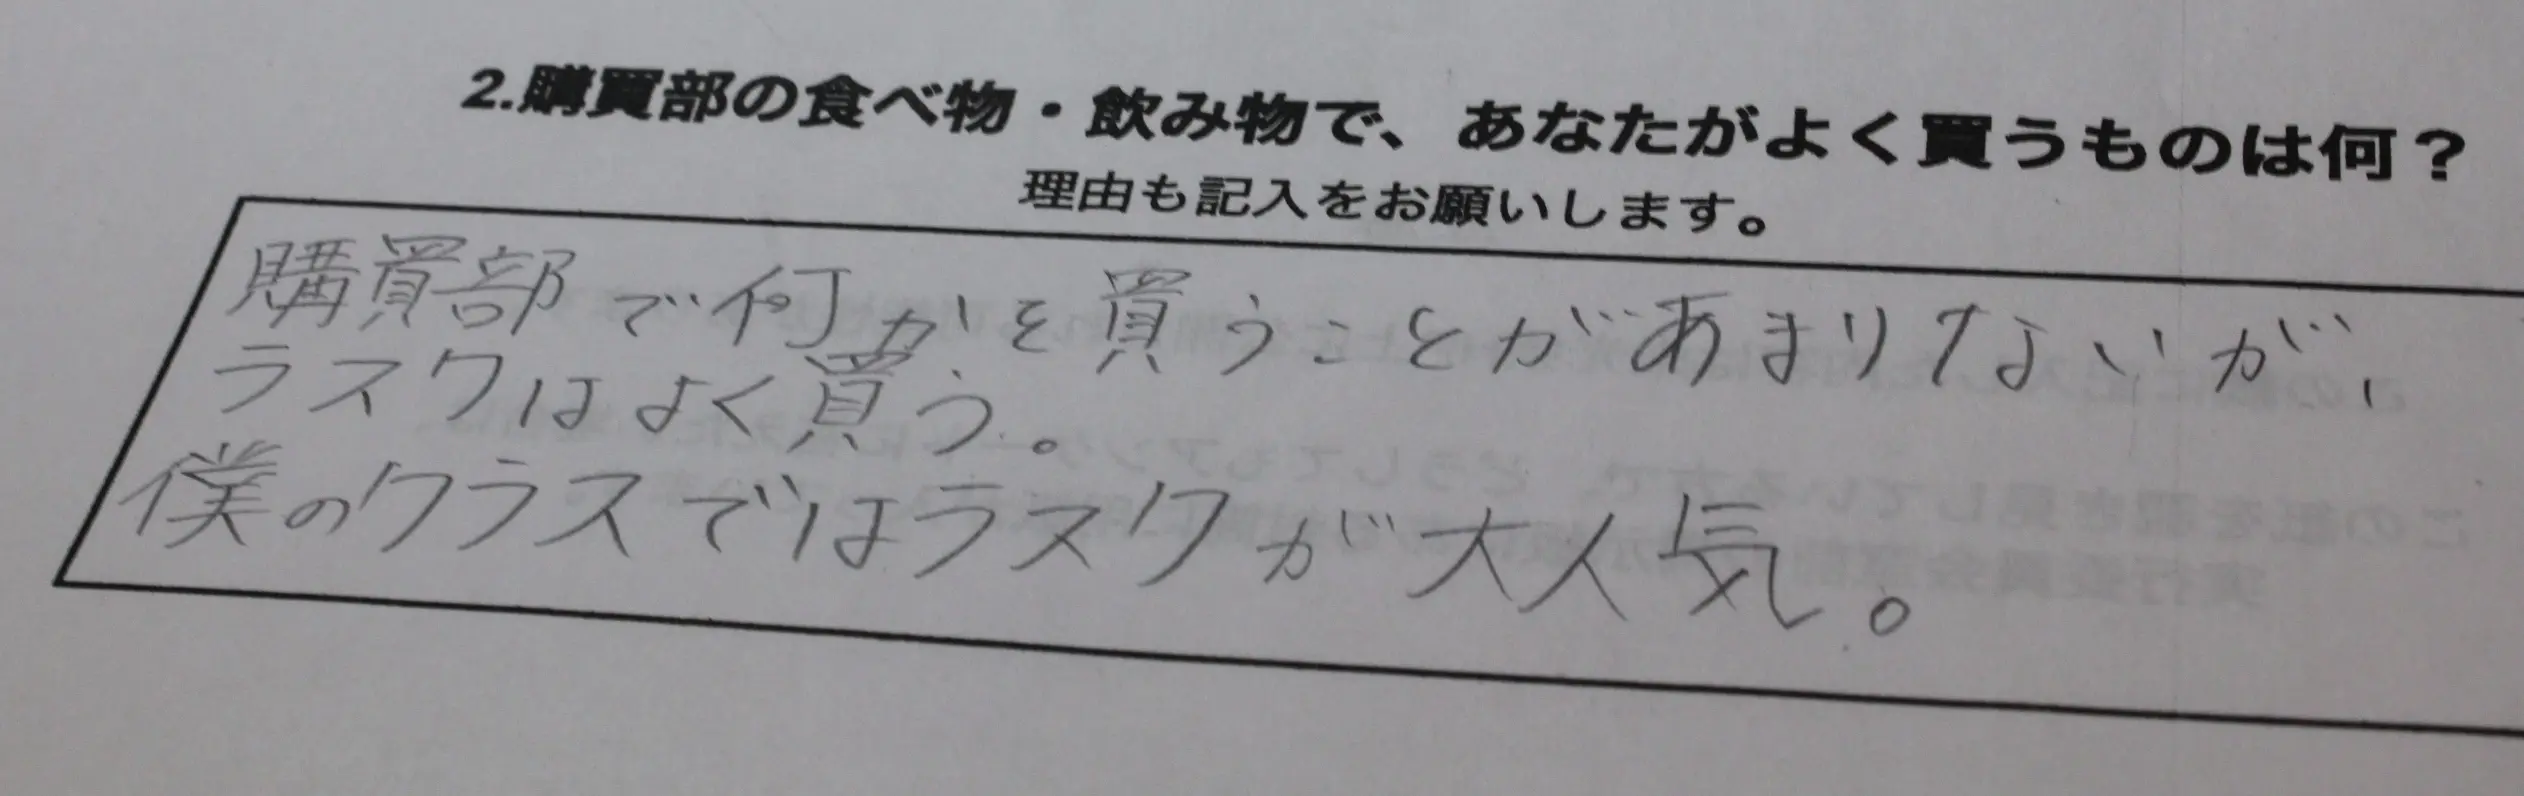 2.購買部の食べ物・飲み物で、あなたがよく買うものは何？
理由も記入をお願いします。
購買部で何かを買うことがあまりないが、
ラスクはよく買う。
僕のクラスではラスクが大人気。